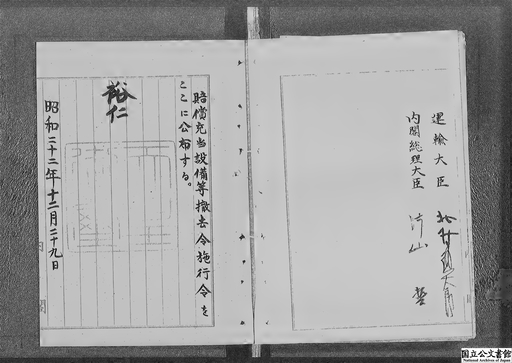 運輸大臣 北村徳太郎
内閣総理大臣 片山 哲
賠償充当設備等撤去令施行令を
ここに公布する。
裕仁
昭和二十二年十二月二十九日
内閣
国立公文書館
National Archives of Japan